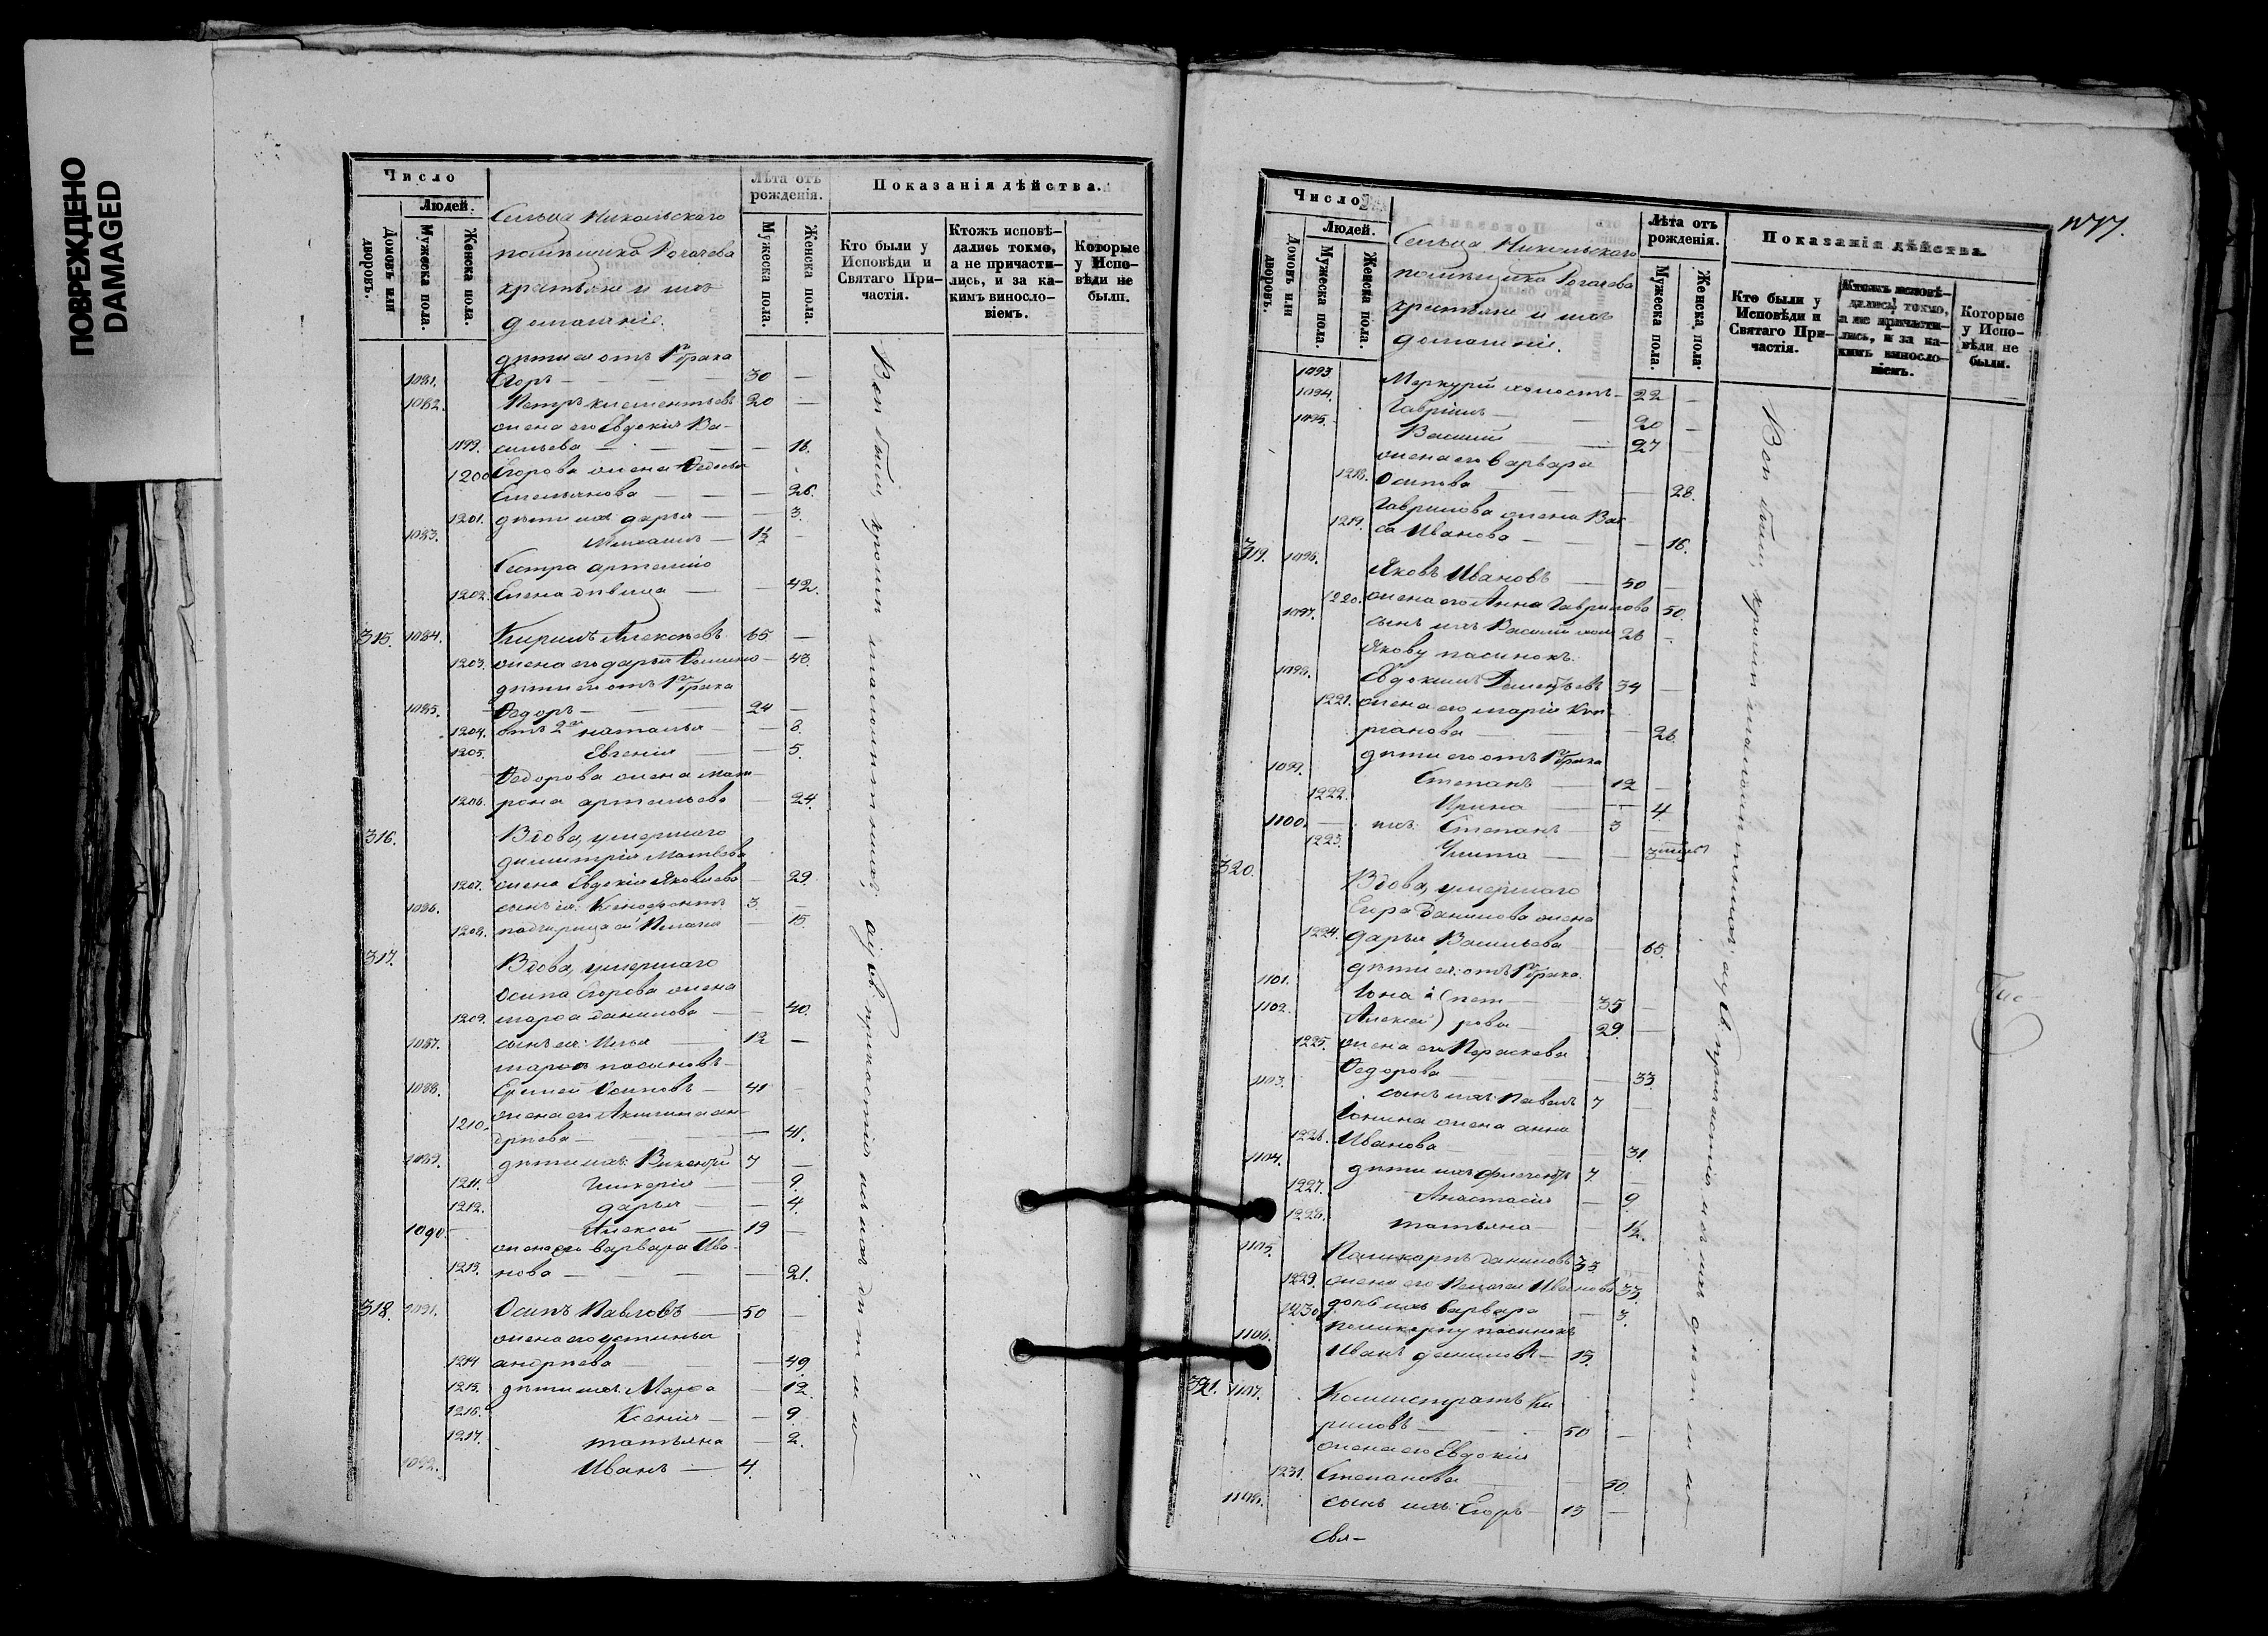 ПОВРЕЖДЕНО
DAMAGED
Число
Людей.
Домовъ или дворовъ.
Мужеска пола.
Женска пола.
Сельца Никольскаго
помѣщика Рогачева
крестьяне и ихъ
домашніе.
Лѣта отъ рожденія.
Мужеска пола.
Женска пола.
Показанія дѣйства.
Кто были у Исповѣди и Святаго Причастія.
Ктожъ исповѣдались токмо, а не причастились, и за какимъ винословіемъ.
Которые у Исповѣди не были.
дѣти ея отъ 1го брака
1081. Егоръ — 30 —
1082. Петръ Клементьевъ 20 —
жена его Евдокія Ва-
1199. сильева — — 16.
1200 Егорова жена Федосья
Емельянова — — 26.
1201. дѣти ихъ Дарья — — 3.
1083. 1½ —
Сестра
1202. Елена дѣвица — — 42.
315. 1084. Кирилъ Алексѣевъ 65 —
1203. жена его Дарья — 43.
дѣти его отъ 1го брака
1085. Федоръ — 24 —
1204. отъ 2го Наталья — — 8.
1205. Евгенія — — 5.
Федорова жена Мат-
1206. рона — 24.
316. Вдова, умершаго
Димитрія Матвѣева
1207. жена Евдокія Яковлева — 29.
1086. сынъ ея: Ксенофонтъ 3. —
1208. падчерица ея Пелагея — 15.
317. Вдова, умершаго
Осипа Егорова жена
1209. Марфа Данилова — — 40.
1087. сынъ ея: Илья — 12 —
Марфѣ пасынокъ
1088. Ермей Осиповъ — 41 —
жена его Акилина Ан-
1210. дреева — — 41.
1089. дѣти ихъ: Викентій 7 —
1211. Гликерія — — 9.
1212. Дарья — — 4.
1090. Алексѣй — 19 —
жена его Варвара Ива-
1213. нова — — 21.
318. 1091. Осипъ Павловъ — 50 —
жена его Устинья
1214 Андреева — — 49
1215. дѣти ихъ: Марфа — 12
1216. Ксенія — — 9.
1217. Татьяна — 2.
1092. Иванъ — 4.
Вси были, кромѣ малолѣтнихъ, а у Св. Причастія и сихъ дѣти
1077.
Число
Людей.
Домовъ или дворовъ.
Мужеска пола.
Женска пола.
Сельца Никольскаго
помѣщика Рогачева
крестьяне и ихъ
домашніе.
Лѣта отъ рожденія.
Мужеска пола.
Женска пола.
Показанія дѣйства.
Кто были у Исповѣди и Святаго Причастія.
Ктожъ исповѣдались токмо, а не причастились, и за какимъ винословіемъ.
Которые у Исповѣди не были.
1093 Меркурій холостъ — 22 —
1094. Гавріилъ — 20 —
1095. Василій — 27 —
жена его Варвара
1218. Осипова — — 28.
Гаврилова жена Вас-
1219. са Иванова — — 16.
319. 1096. Яковъ Ивановъ — 50 —
1220. жена его Анна Гаврилова 50.
1097. сынъ ихъ Василій хол. 26 —
Якову пасынокъ:
1098. Евдокимъ Дементьевъ 34 —
1221. жена его Марія Кип-
ріанова — — 26.
дѣти его отъ 1го брака
1099. Степанъ — 12 —
1222. Ирина — — 4.
1100. ихъ: Степанъ — 3 —
1223. Улита — — 3 мѣсяц.
320. Вдова, умершаго
Егора Данилова жена
1224. Дарья Васильева — 65.
дѣти ея: отъ 1го брака
1101. Іона и (Пет- — 35 —
1102. Алексѣй) ровы — 29. —
1225. жена его Параскева
Федорова — — 33
1103. сынъ ихъ: Павелъ 7 —
Іонина жена Анна
1226. Иванова — — 31.
1104. дѣти ихъ 7. —
1227. Анастасія — 9.
1228. Татьяна — — 1½.
1105. Поликарпъ Даниловъ 35
1229. жена его Пелагея Иванова 33.
1230. дочь ихъ Варвара — 3.
Поликарпу пасынокъ
1106. Иванъ Даниловъ — 15.
321. 1107. Каллистратъ Ки-
риловъ — 50 —
жена его Евдокія
1231. Степанова — — 50.
1108. сынъ ихъ: Егоръ — 15 —
Вси были, кромѣ малолѣтнихъ, а у Св. Причастія и сихъ дѣти
Свя-